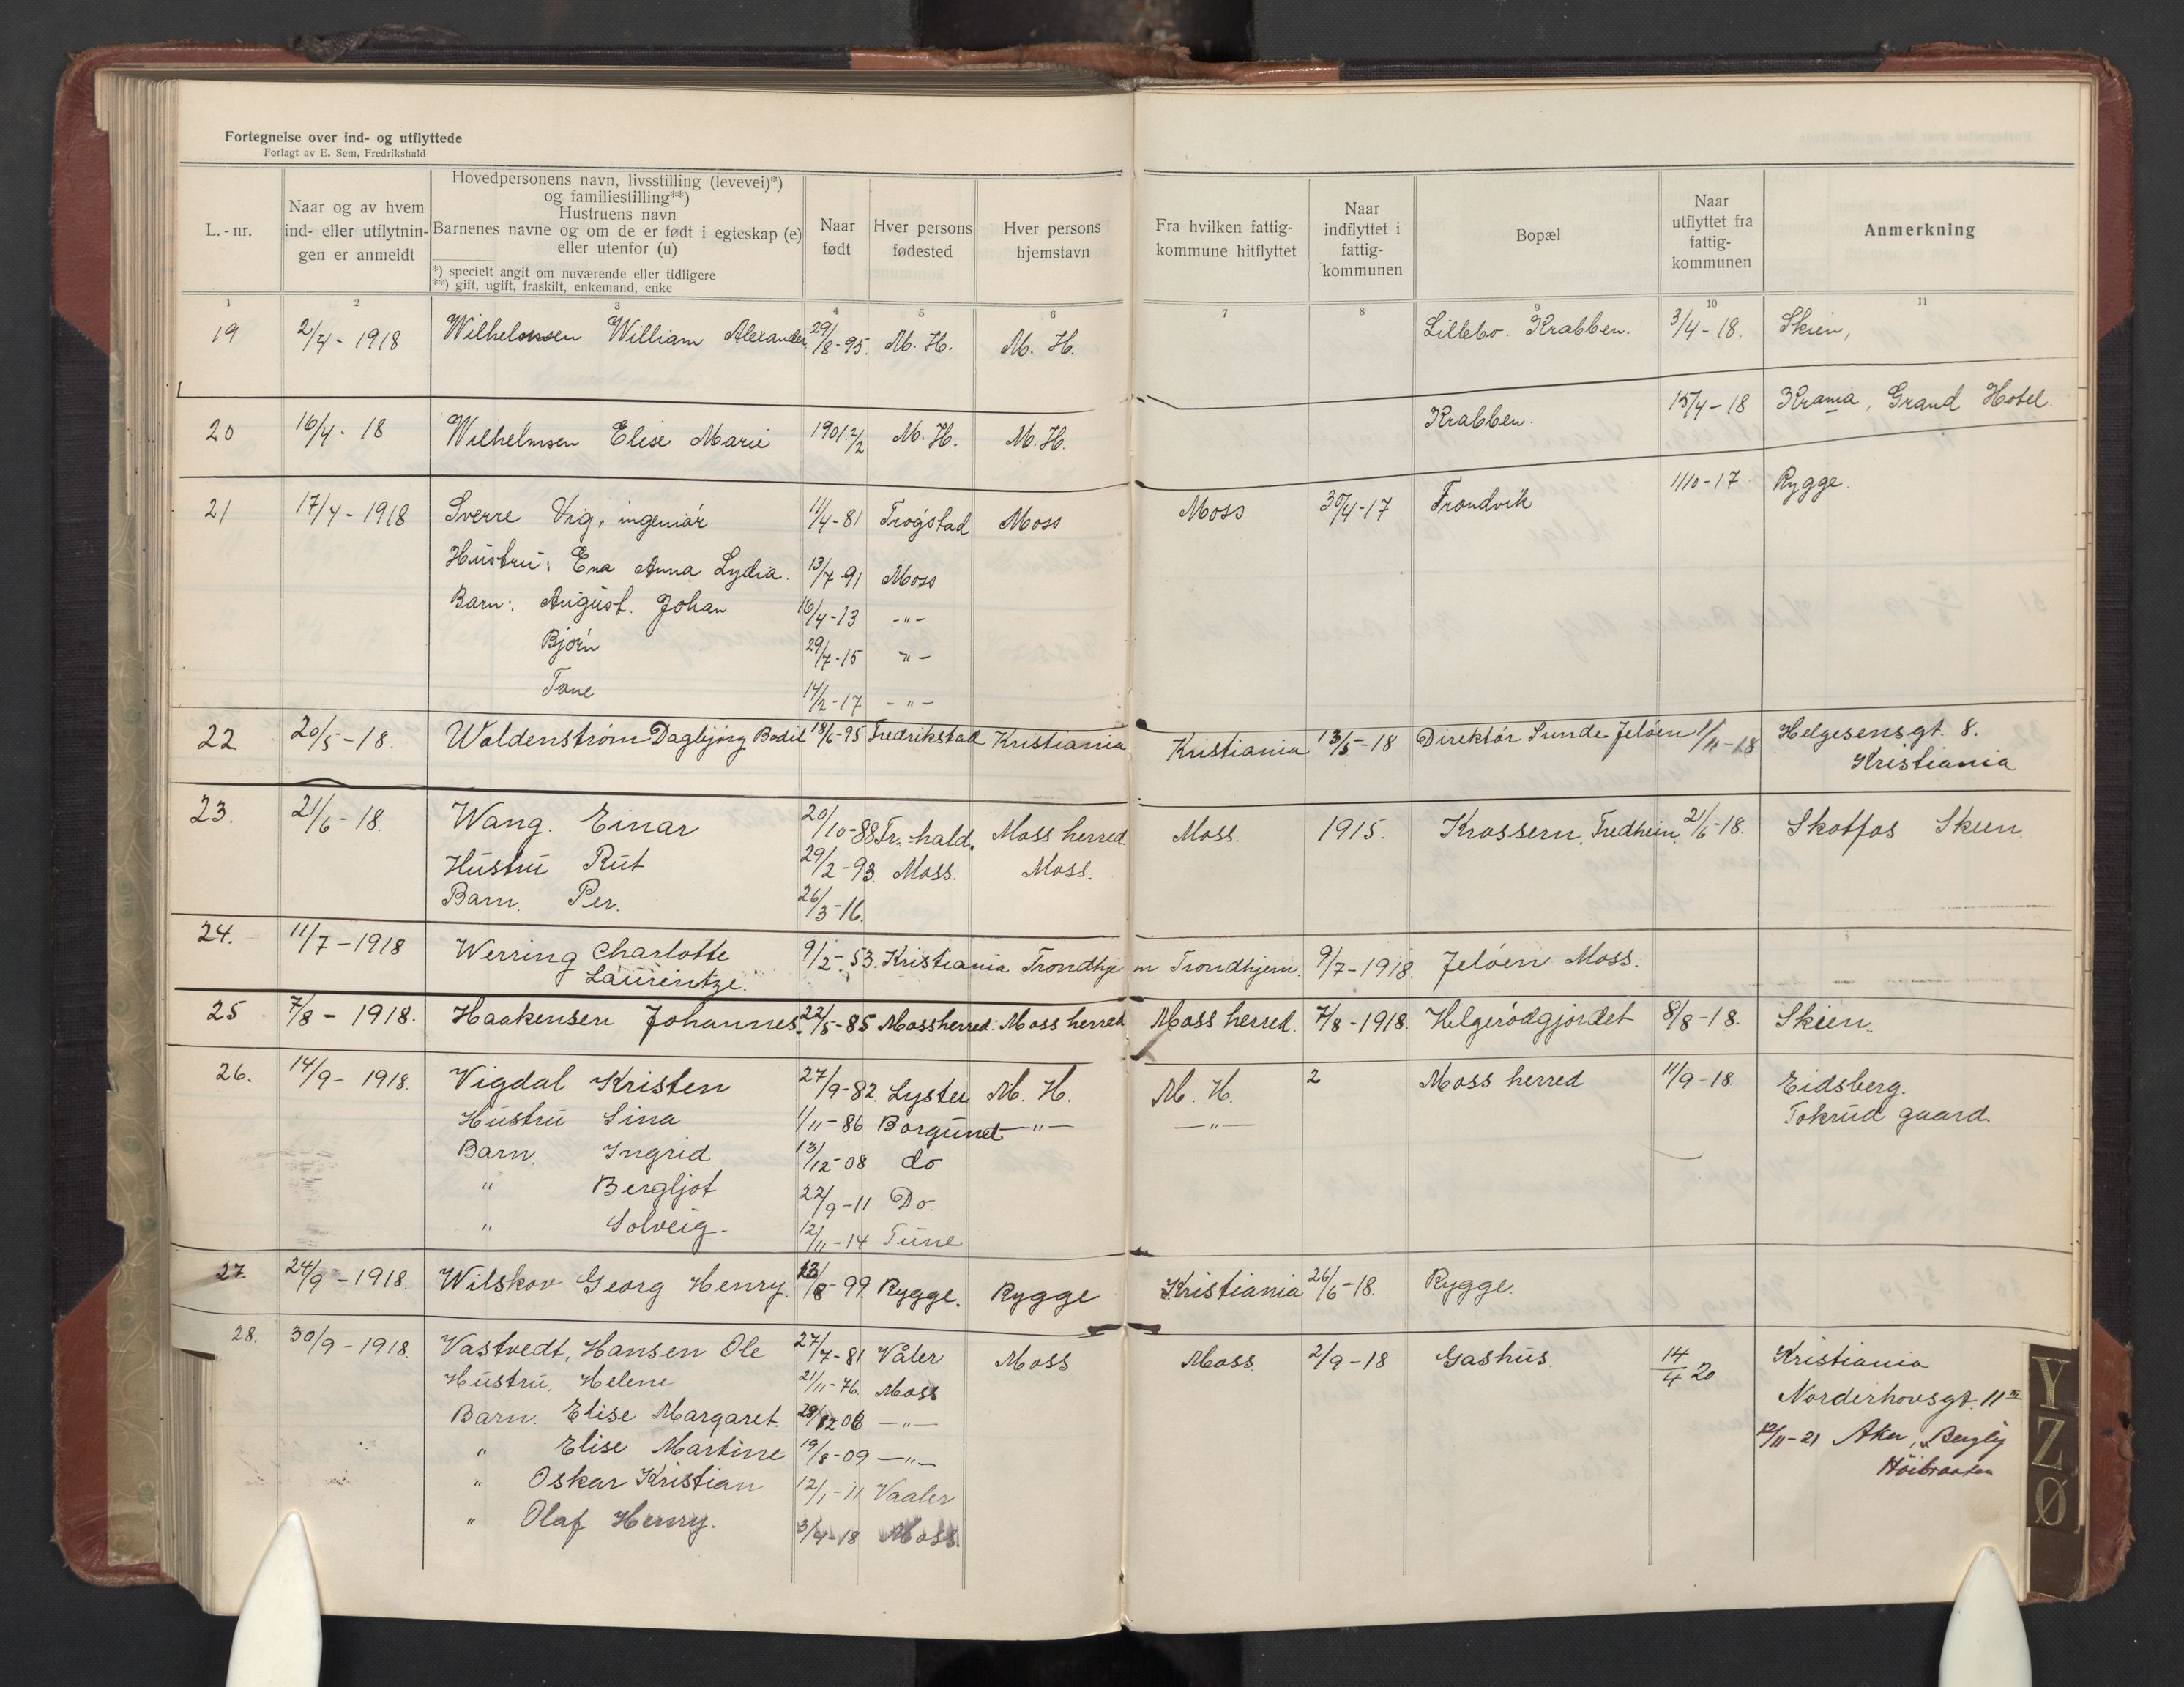 Fortegnelse over ind- og utflyttede
Forlagt av E. Sem, Fredrikshald
L.-nr.
Naar og av hvem ind- eller utflytningen er anmeldt
Hovedpersonens navn, livsstilling (levevei)*)
og familiestilling**)
Hustruens navn
Barnenes navne og om de er født i egteskap (e)
eller utenfor (u)
*) specielt angit om nuværende eller tidligere
**) gift, ugift, fraskilt, enkemand, enke
Naar født
Hver persons fødested
Hver persons hjemstavn
Fra hvilken fattig-kommune hitflyttet
Naar indflyttet i fattig-kommunen
Bopæl
Naar utflyttet fra fattig-kommunen
Anmerkning
1 2 3 4 5 6 7 8 9 10 11
19 2/4 - 1918 Wilhelmsen William Alexander 29/8-95. M. H. M. H. Lillebo. Krabben. 3/4-18. Skien,
20 16/4 - 18 Wilhelmsen Elise Marie 1901 2/2 M. H. M. H. Krabben. 15/4-18 Krania, Grand Hotel.
21 17/4 - 1918 Sverre Vig, ingeniør 11/4-81 Trøgstad Moss Moss 30/4-17 Frondvik 1/10-17 Rygge.
Hustru: Ena Anna Lydia. 13/7-91 Moss
Barn: August. Johan 16/4-13 -"-
Bjørn 29/7-15 "-
Tone 14/2-17 -"-
22 20/5-18. Woldenstrøm Dagbjørg Bodil 18/6-95 Fredrikstad Kristiania Kristiania 13/5-18 Direktør Sunde Jeløen 1/11-18 Helgesensgt. 8.
Kristiania
23. 21/6-18. Wang. Einar 20/10-88 Fr.-hald. Moss herred. Moss. 1915. Krossern, Fredheim. 21/6-18. Skotfos Skien.
Hustru Rut 29/2-93. Moss. Moss.
Barn. Per. 26/3-16.
24. 11/7-1918 Werring Charlotte 9/2-53. Kristiania Trondhjem Trondhjem. 9/7-1918. Jeløen Moss.
Laurentze.
25 7/8-1918. Haakensen Johannes. 22/5-85 Mossherred. Moss herred Moss herred. 7/8-1918. Helgerødgjordet 8/8-18. Skien.
26. 14/9-1918. Vigdal Kristen 27/9-82. Lyster M. H. M. H. 2 Moss herred 11/9-18 Eidsberg.
Hustru Sina 1/11-86 Borgund -"- -"- Tokrud gaard.
Barn. Ingrid 13/12-08 do
" Bergljot 22/9-11 Do.
" Solveig. 12/11-14 Tune
27. 24/9-1918. Wilskov Georg Henry. 13/8-99. Rygge. Rygge Kristiania 26/6-18. Rygge.
28. 30/9-1918. Vastvedt, Hansen Ole 27/7-81 Våler Moss Moss. 2/9-18 Gashus 14/4 20 Kristiania
Hustru, Helene 21/11-76. Moss Norderhovsgt. 11
Barn. Elise Margaret. 12 06 -"- 12/11-21 Aker, "Bergly
" Elise Martine 19/8-09 -"- Høibraaten
" Oskar Kristian 12/1-11 Vaaler
" Olaf Henry. 3/4-18 Moss.
Y
Z
Ø